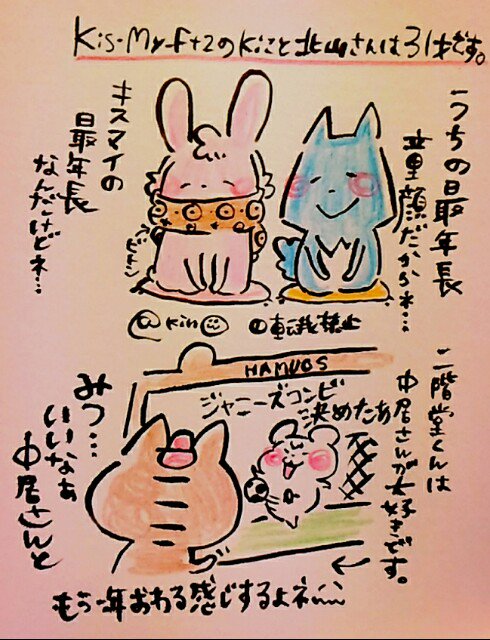 Kis-My-Ft2のKiこと北山さんは31才です。
うちの最年長
童顔だからネ…
キスマイの
最年長
なんだけどネ…
ビトン
@kin
@転載禁止
二階堂くんは
中居さんが大好きです。
HAMUOS
ジャニーズコンビ
決めたぁ
みつ…
いいなぁ
中居さんと
もう一年おわる感じするよネ